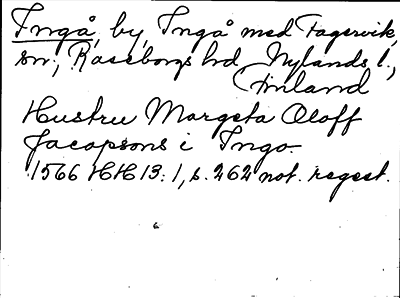 Ingå, by, Ingå med Fagervik,
sn:, Raseborgs hd, Nylands l.,
Finland
Hustru Margeta Oloff
Jacopsons i Ingo.
1566 HH 13:1, s. 262 not. regest.